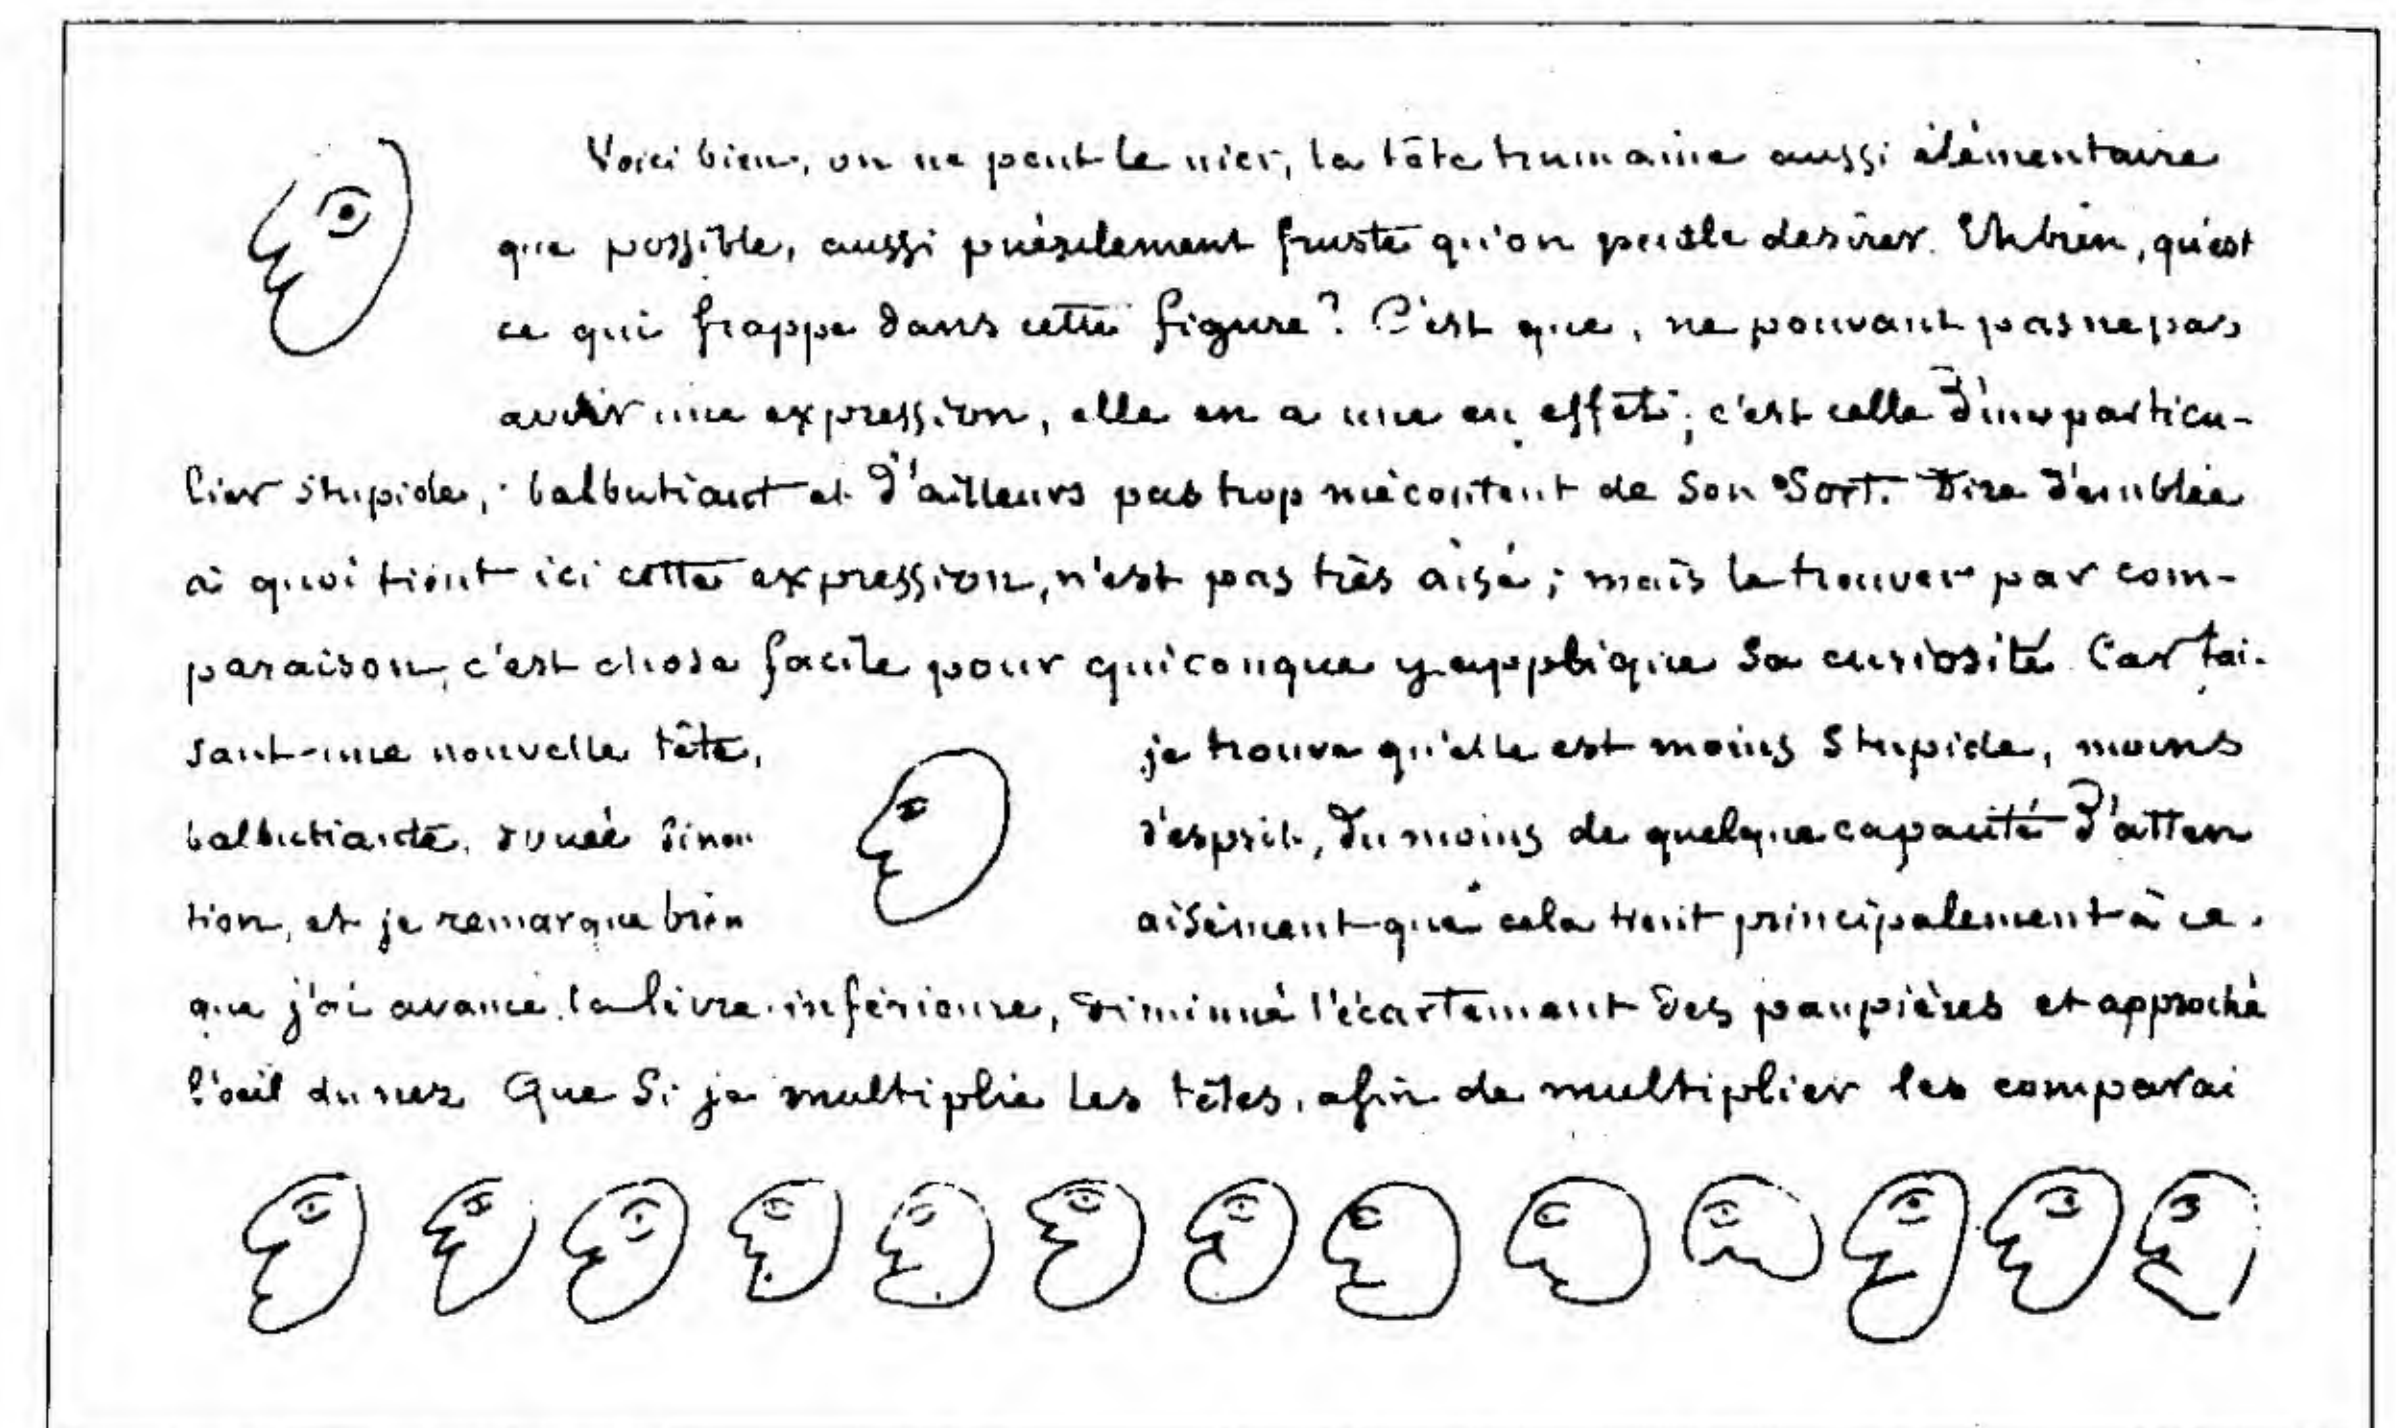 Voici bien, on ne peut le nier, la tête humaine aussi élémentaire
que possible, aussi puérilement fruste qu'on puisse desirer. Eh bien, qu'est
ce qui frappe dans cette figure? C'est que, ne pouvant pas ne pas
avoir une expression, elle en a une en effet; c'est celle d'un particu-
lier stupide, balbutiant et d'ailleurs pas trop mécontent de son sort. Dire d'emblée
à quoi tient ici cette expression, n'est pas très aisé; mais le trouver par com-
paraison, c'est chose facile pour quiconque y applique sa curiosité. Car fai-
sant une nouvelle tête, je trouve qu'elle est moins stupide, moins
balbutiante, douée sinon d'esprit, du moins de quelque capacité d'atten
tion, et je remarque bien aisément que cela tient principalement à ce
que j'ai avancé la lèvre inférieure, diminué l'écartement des paupières et approché
l'oeil du nez. Que si je multiplie les têtes, afin de multiplier les comparai